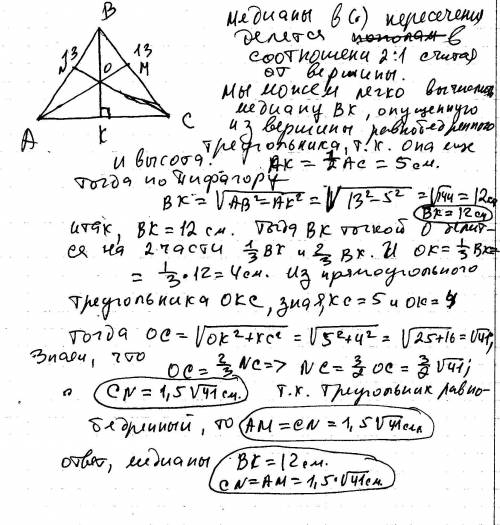 B
13
13
N
O
M
A
K
C
Медианы в (·) пересечения
делятся пополам в
соотношени 2:1 считая
от вершины.
Мы можем легко вычислить
медиану BK, опущенную
из вершины равнобедренного
треугольника, т.к. она еще
и высота. AK = 1/2 AC = 5 см.
Тогда по Пифагору
BK = √AB²-AK² = √13²-5² = √144 = 12 см
BK = 12 см
итак, BK = 12 см. Тогда BK точкой O делит-
ся на 2 части 1/3 BK и 2/3 BK. И OK = 1/3 BK =
= 1/3 · 12 = 4 см. Из прямоугольного
треугольника OKC, зная, KC = 5 и OK = 4
Тогда OC = √OK²+KC² = √5²+4² = √25+16 = √41;
Знаем, что
OC = 2/3 NC => NC = 3/2 OC = 3/2 √41;
CN = 1,5√41 см. т.к. треугольник равно-
бедренный, то AM = CN = 1,5√41 см.
ответ, медианы BK = 12 см.
CN = AM = 1,5·√41 см.